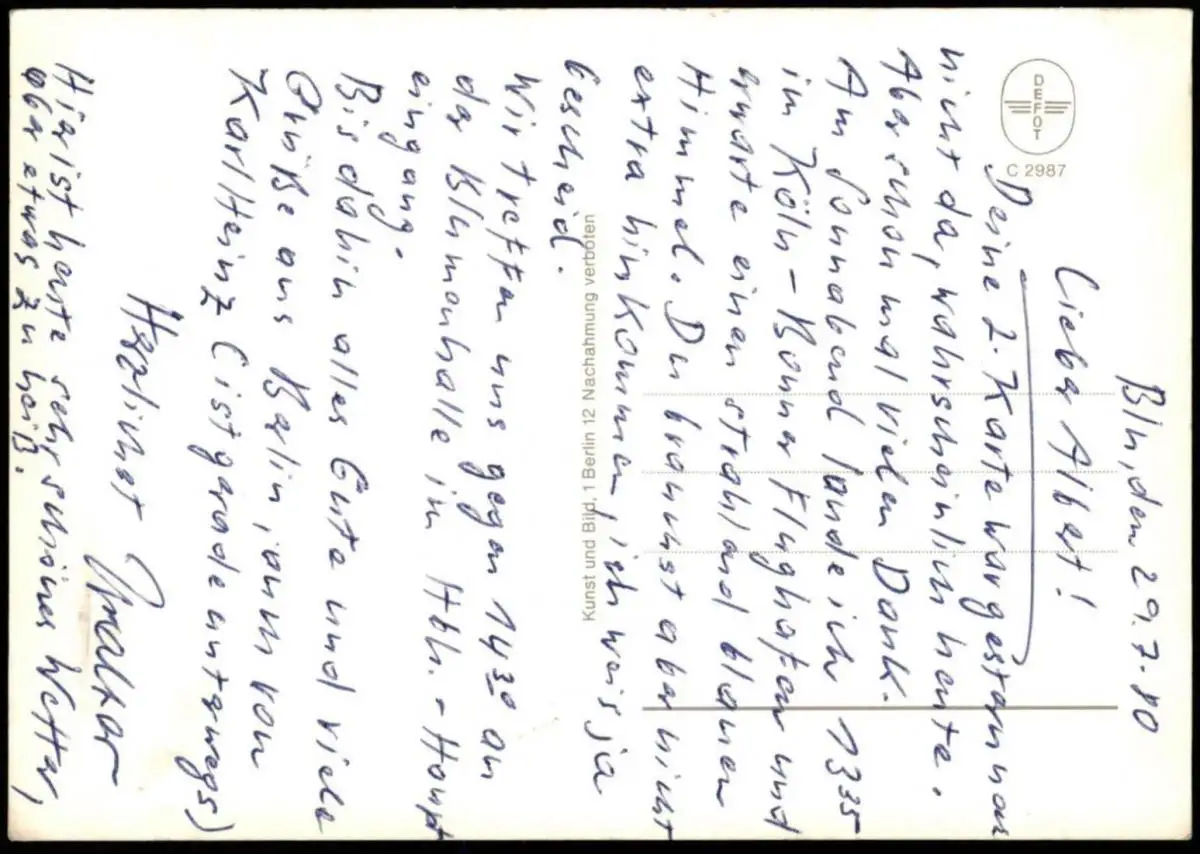 Bln, den 29.7.80
Lieber Albert!
Deine 2. Karte war gestern noch
nicht da, wahrscheinlich heute.
Aber schon mal vielen Dank.
Am Sonnabend lande ich 13³⁵
im Köln-Bonner Flughafen und
erwarte einen strahlend blauen
Himmel. Du brauchst aber nicht
extra hinkommen, ich weis ja
bescheid.
Wir treffen uns gegen 14³⁰ an
der Blumenhalle im Hbh.-Haupt
eingang.
Bis dahin alles Gute und viele
Grüße aus Berlin, auch von
Karl Heinz (ist gerade unterwegs)
Herzlichst
Hier ist heute sehr schönes Wetter,
aber etwas zu heiß.
DEFOT
C 2987
Kunst und Bild, 1 Berlin 12 Nachahmung verboten